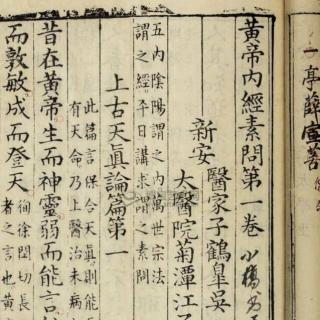 黃帝內經素問第一卷
新安
醫家子鶴皐吳
太醫院菊潭江子
五內陰陽謂之內萬世宗法
謂之經平日講求謂之問
上古天眞論篇第一
此篇言保合天眞則能
有天命乃上醫治未病
昔在黃帝生而神靈弱而能言
而敦敏成而登天
徇徐閏切長
者之言也黃